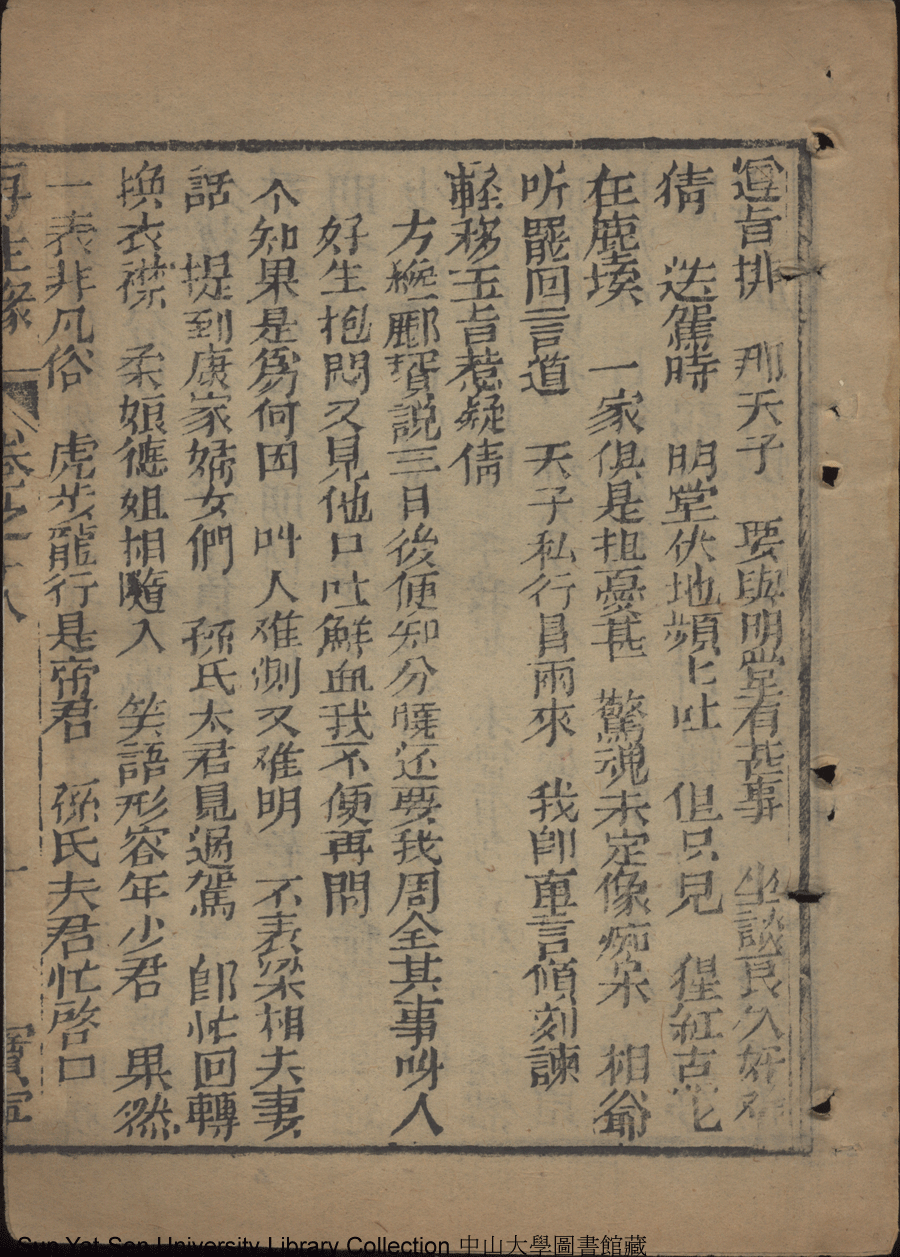 遵旨排　那天子　要與明堂有甚事　坐談良久好難
猜　送駕時　明堂伏地頻匕吐　但只見　猩紅点匕
在塵埃　一家俱是担憂甚　驚魂未定像痴呆　相爺
听罷回言道　天子私行冒雨來　我卽直言傾刻諫
輕移玉旨惹疑倩
方纔酈壻説三日後便知分曉还要我周全其事呌人
好生抱悶又見他口吐鮮血我不便再問
不知果是爲何因　叫人难測又难明　不表梁相夫妻
話　提到康家婦女們　孫氏太君見過駕　卽忙回轉
換衣襟　柔娘德姐相隨入　笑語形容年少君　果然
一表非凡俗　虎步龍行是帝君　孫氏夫君忙啓口
再生緣　卷之十八　一　寳寧
Sun Yat Sen University Library Collection 中山大學圖書館藏